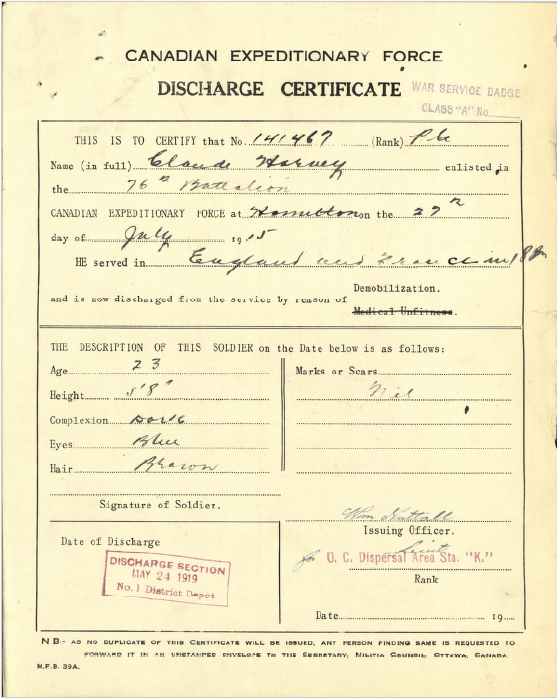 CANADIAN EXPEDITIONARY FORCE
DISCHARGE CERTIFICATE
WAR SERVICE BADGE
CLASS "A" No
THIS IS TO CERTIFY that No. 141467 (Rank) Pte
Name (in full) Claude Harvey enlisted in
the 76th Battalion
CANADIAN EXPEDITIONARY FORCE at Hamilton on the 27th
day of July 1915
HE served in England and France
Demobilization.
and is now discharged from the service by reason of
Medical Unfitness.
THE DESCRIPTION OF THIS SOLDIER on the Date below is as follows:
Age 23
Height 5'8"
Complexion Dark
Eyes Blue
Hair Brown
Marks or Scars
Nil
Signature of Soldier.
Wm Nuttall
Issuing Officer.
Lieut
for O. C. Dispersal Area Sta. "K."
Rank
Date of Discharge
DISCHARGE SECTION
MAY 24 1919
No. 1 District Depot
Date 19
NB.- AS NO DUPLICATE OF THIS CERTIFICATE WILL BE ISSUED, ANY PERSON FINDING SAME IS REQUESTED TO
FORWARD IT IN AN UNSTAMPED ENVELOPE TO THE SECRETARY, MILITIA COUNCIL, OTTAWA, CANADA.
M.F.B. 39A.